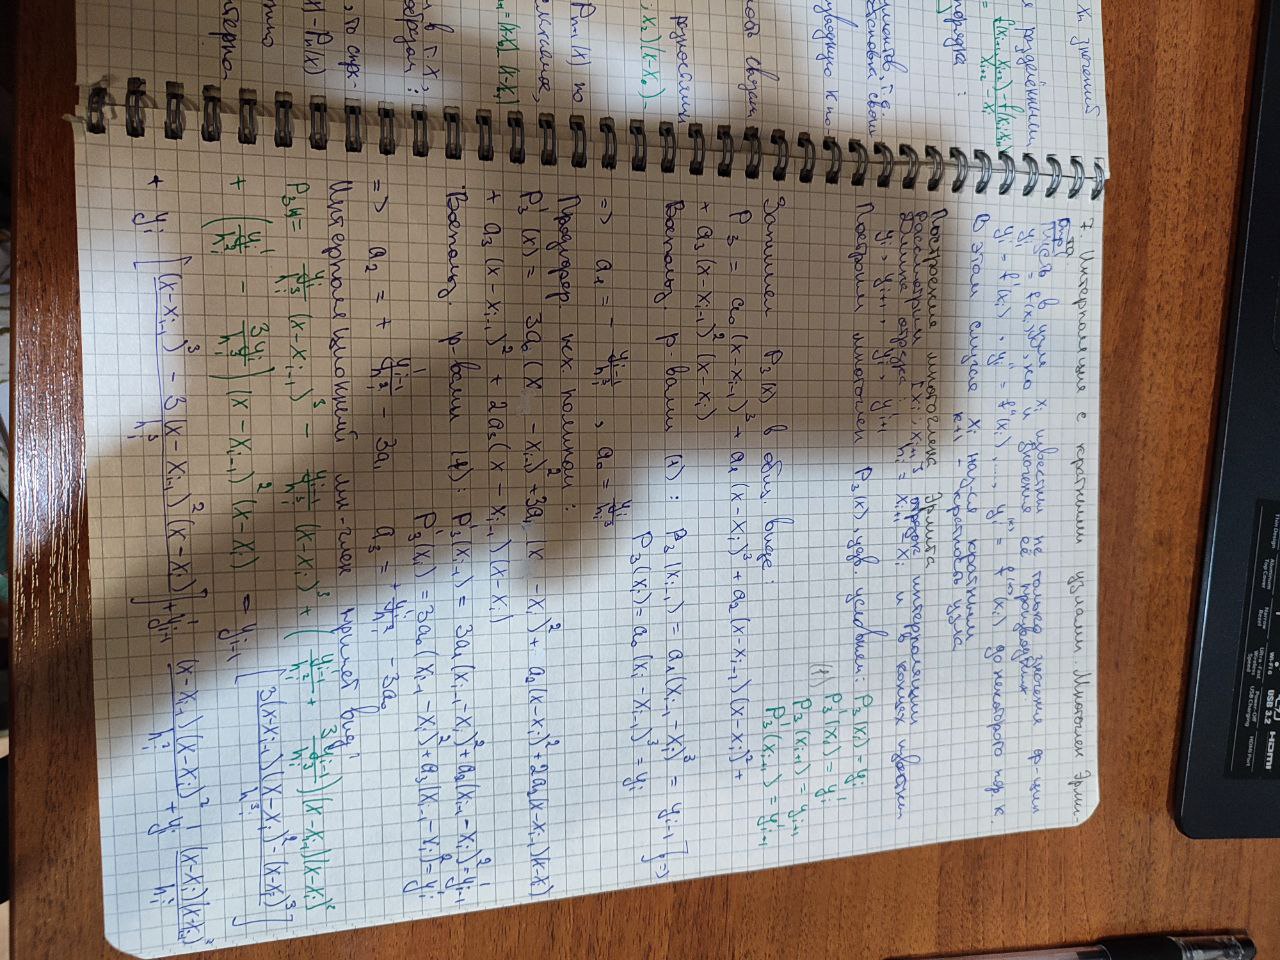 Thin Design
Aluminum Top Cover
Narrow Bezel
Wi-Fi 6
Ultra-Fast Wireless Speed
USB 3.2
Power-Off USB Charging
HDMI
HDMI Port
Xn значений
е разделёнными
f(xi+1, xi+2) - f(xi, xi+1)
= xi+2 - xi
порядка :
ументов, т.е.
зводную к по-
ность связана
разностями
, x2)(x-x0) -
Pn-1(x) по
слагаемое,
и в т. x,
образом :
, то спра-
x) - Pn(x)
нтерпо-
7. Интерполяция с кратными узлами. Многочлен Эрми-
та.
Опр
Пусть в узле xi известны не только значения ф-ции
yi = f(xi), но и значения её производных
yi' = f'(xi), yi'' = f''(xi), ..., yi^(k) = f^(k)(xi) до некоторого пор. k.
В этом случае xi наз-ся кратным
k+1 - кратность узла
Построение многочлена Эрмита
Рассмотрим [xi, xi+1] отрезок интерполяции
Длина отрезка : hi = xi+1 - xi и в концах известны
yi, yi+1, yi', yi+1'
Построим многочлен P3(x), удв. условиям: P3(xi) = yi
P3'(xi) = yi'
(1) P3(xi+1) = yi+1
P3'(xi+1) = yi+1'
Запишем P3(x) в общ. виде:
P3 = a0(x-xi-1)^3 + a1(x-xi)^3 + a2(x-xi-1)(x-xi)^2 +
+ a3(x-xi-1)^2 (x-xi)
Воспольз. р-вами (1) : P3(xi-1) = a1(xi-1-xi)^3 = yi-1 } =>
P3(xi) = a0(xi-xi-1)^3 = yi
=> a1 = - yi-1/hi^3 , a0 = yi/hi^3
Продифер. исх. полином :
P3'(x) = 3a0(x - xi-1)^2 + 3a1(x - xi)^2 + a2(x-xi)^2 + 2a2(x-xi-1)(x-xi)
+ a3(x-xi-1)^2 + 2a3(x-xi-1)(x-xi)
Воспольз. р-вами (1): P3'(xi-1) = 3a1(xi-1-xi)^2 + a2(xi-1-xi)^2 = yi-1'
P3'(xi) = 3a0(xi-1-xi)^2 + a3(xi-1-xi)^2 = yi'
=> a2 = + yi-1'/hi^2 - 3a1 a3 = + yi'/hi^2 - 3a0
Интерполяционный мн-член примет вид:
P3(x) = yi/hi^3 (x-xi-1)^3 - yi-1/hi^3 (x-xi)^3 + (yi-1'/hi^2 + 3yi-1/hi^3)(x-xi-1)(x-xi)^2
+ (yi'/hi^2 - 3yi/hi^3)(x-xi-1)^2 (x-xi) = yi-1 [(3(x-xi-1)(x-xi)^2 - (x-xi)^3)/hi^3]
+ yi [((x-xi-1)^3 - 3(x-xi-1)^2 (x-xi))/hi^3] + yi-1' (x-xi-1)(x-xi)^2/hi^2 + yi' (x-xi)(x-xi-1)^2/hi^2